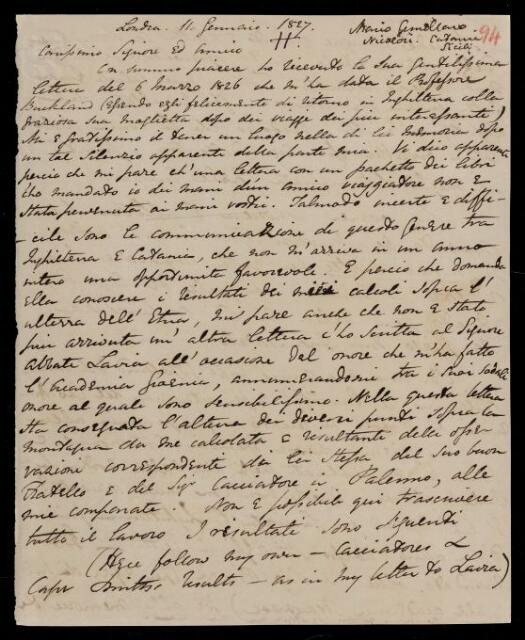 Londra. 11. Gennaio. 1827.
Mario Gemellaro
Nicolosi. Catania
Sicily
94
Carissimo Signore Ed Amico
Con summo piacere ho recevuto la sua gentilissima
lettera del 6 Marzo 1826 che m'ha data il Professore
Buckland (essendo egli felicemente di ritorno in Inghilterra colla
graziosa sua moglietta dopo dei viagge dei piu interessanti)
Mi è gratissimo il tener un luogo nella di lei memoria dopo
un tal silenzio apparente della parte mia. Vi dico apparente
percio che mi pare ch'una lettera con un pachetto dei libri
c'ho mandato io dei mani d'un amico viaggiatore non è
stata pervenuta ai mani vostri. Talmodo incerte e diffi-
-cile sono le communicazione di questo genere tra
Inghilterra E Catania, che non m'arriva in un anno
intero una opportunita favorevole. E percio che domanda
ella conoscere i resultati dei miei calcoli sopra l'
alterra dell' Etna, mi pare anche che non è stato
piu arrivata un' altra lettera c'ho scritta al Signore
Abbate Lavia all' occasione del 'onore che m'ha fatto
l' Academia Gioenia, annumerandomi tra i suoi socii
onore al quale sono sensibilissimo. Nella questa lettera
sta consegnata l'altura dei diversi punti sopra la
montagna da me calcolata e resultante delle osser-
vazioni correspondente di lei stessa del suo buon
fratello e del Sigr Cacciatore a Palermo, alle
mie comparate. Non è possibile qui trascrivere
tutto il lavoro I resultati sono seguenti
(Here follow my own – Cacciatores &
Capt Smiths results – as in my letter to Lavia)